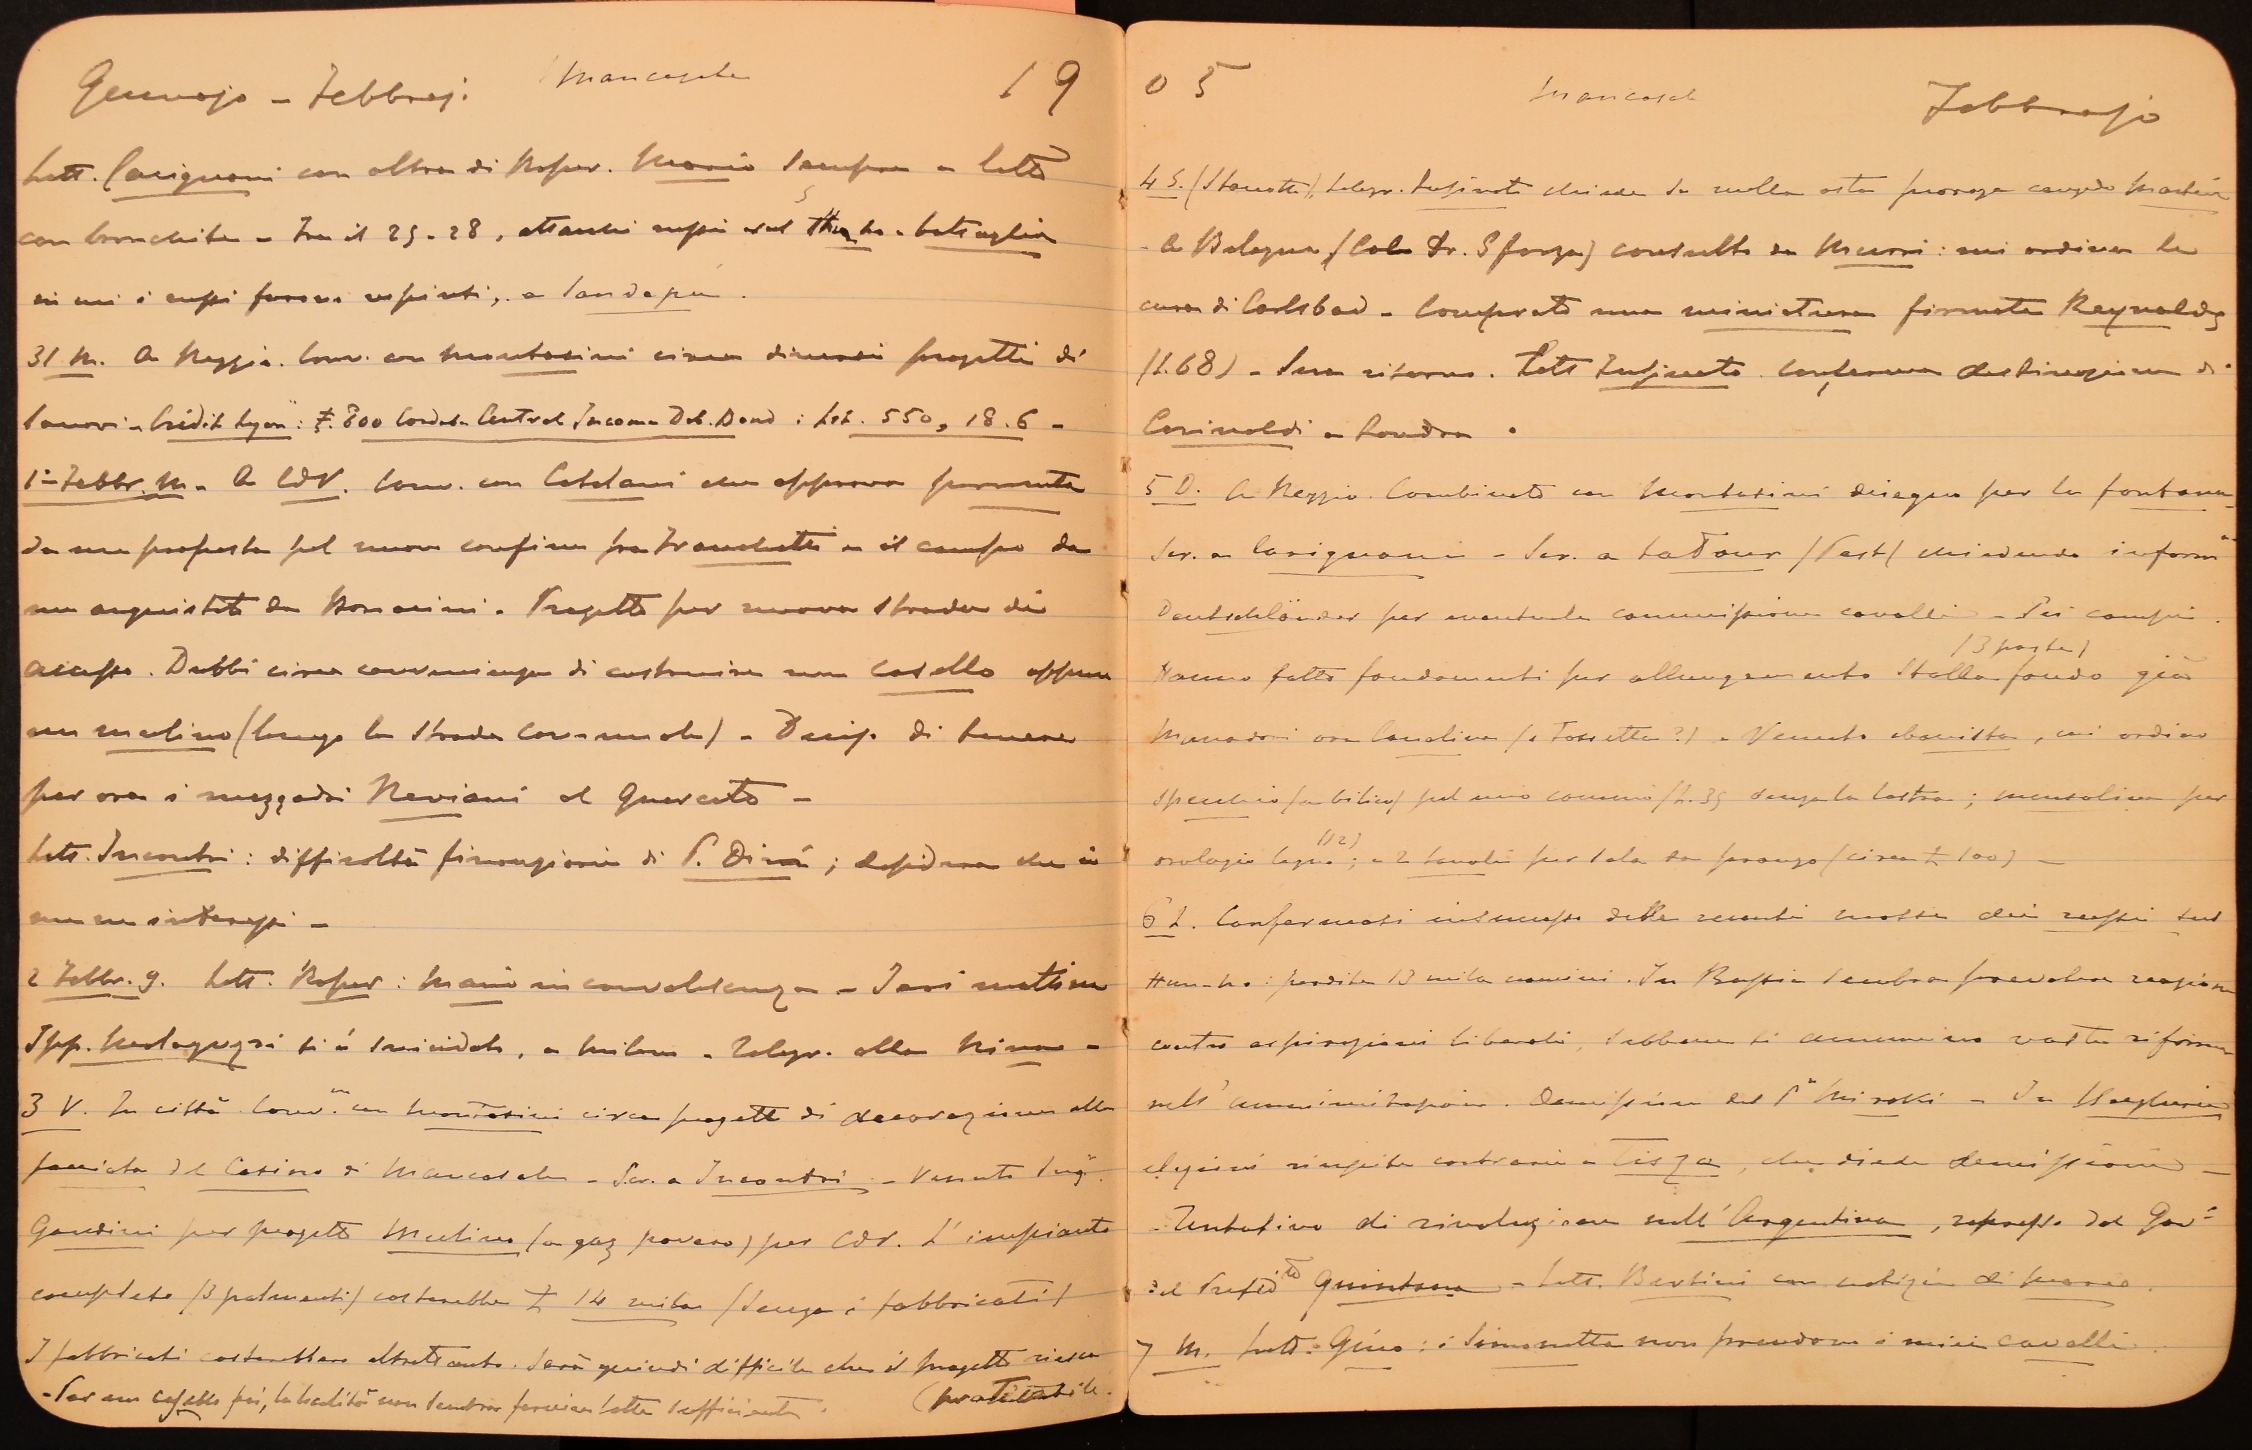 Gennajo - Febbraj.
Mancasale
19
Lett. Carignani con altra di Kospur. Mario sempre a letto
con bronchite - Fra il 25-28, attacchi russi sul Hun-ho - battaglia
in cui i russi furono respinti, a Sandepu.
31 M. A Reggio. Conv. con Montosini circa diversi progetti di
lavori - Crédit Lyon: £. 800 Cordob. Central Income Deb. Bond : Lst. 550, 18.6 -
1° Febbr. M. - A CDV. Conv. con Catelani che approva
da me proposta pel nuovo confine fra Franchetti e il campo da
me acquistato da Bonacini. Progetto per nuova strada di
accesso. Dubbi circa convenienza di costruire un casello oppure
un mulino (lungo la strada comunale) - Decis. di tenere
per ora i mezzadri Neviani al Querceto -
Lett. Incontri : difficoltà finanziarie di P. ; desidera che io
me ne interessi -
2 Febbr. G. Lett. Kospur : Mario in convalescenza - Ieri mattina
Ipp. Malaguzzi si è suicidato, a Milano - Telegr. alla Nina -
3 V. In città. Conv.ne con Montosini circa progetti di decorazione alla
facciata del Casino di Mancasale - Scr. a Incontri - Venuto Ing.re
Gandini per progetto Mulino (a gaz povero) per CDV. L'impianto
completo (3 palmenti) costerebbe £ 14 mila (senza i fabbricati)
I fabbricati costerebbero altrettanto. Sarà quindi difficile che il progetto riesca
(praticabile.
- Per un casello poi, la località non sembra fornire latte sufficiente.
05
Mancasale
Febbrajo
4 S. telegr. chiede se nulla osta proroga congedo Martin
- A Bologna (Col Dr. Sforza) consulto da Murri : mi ordina la
cura di Carlsbad - Comprato una miniatura firmata Reynolds
(L. 68) - Sera ritorno. Lett conferma destinazione di
Carinaldi a Londra.
5 D. A Reggio. Combinato con Montosini disegno per la fontana -
Scr. a Carignani - Scr. a LaTour (Pest) chiedendo inform.ni
Deutschländer per eventuale commissione cavalli - Poi campi.
(3 poste)
Hanno fatto fondamenti per allungamento stalla fondo già
Manadori ora Carolina (o Tossetta ?) - Venuto ebanista, cui ordino
specchio (a bilico) pel mio camino (L. 35 senza la lastra ; mensolina per
(12)
orologio legno ; e 2 tavoli per sala da pranzo (circa £ 100) -
6 L. Confermasi insuccesso delle recenti mosse dei russi sul
Hun-ho : perdite 13 mila uomini. In Russia sembra prevalere reazione
contro aspirazioni liberali, sebbene si annunzino vaste riforme
nell'amministrazione. Demissione del P.e Mirski - In Ungheria
elezioni riuscite contrarie a Tisza, che diede demissioni -
- Tentativo di rivoluzione nell'Argentina, represso dal Gov.o
del Presid.te Quintana - Lett. Bertini con notizie di Mario.
7 M. Lett. Gino : i Simonetta non prendono i miei cavalli.